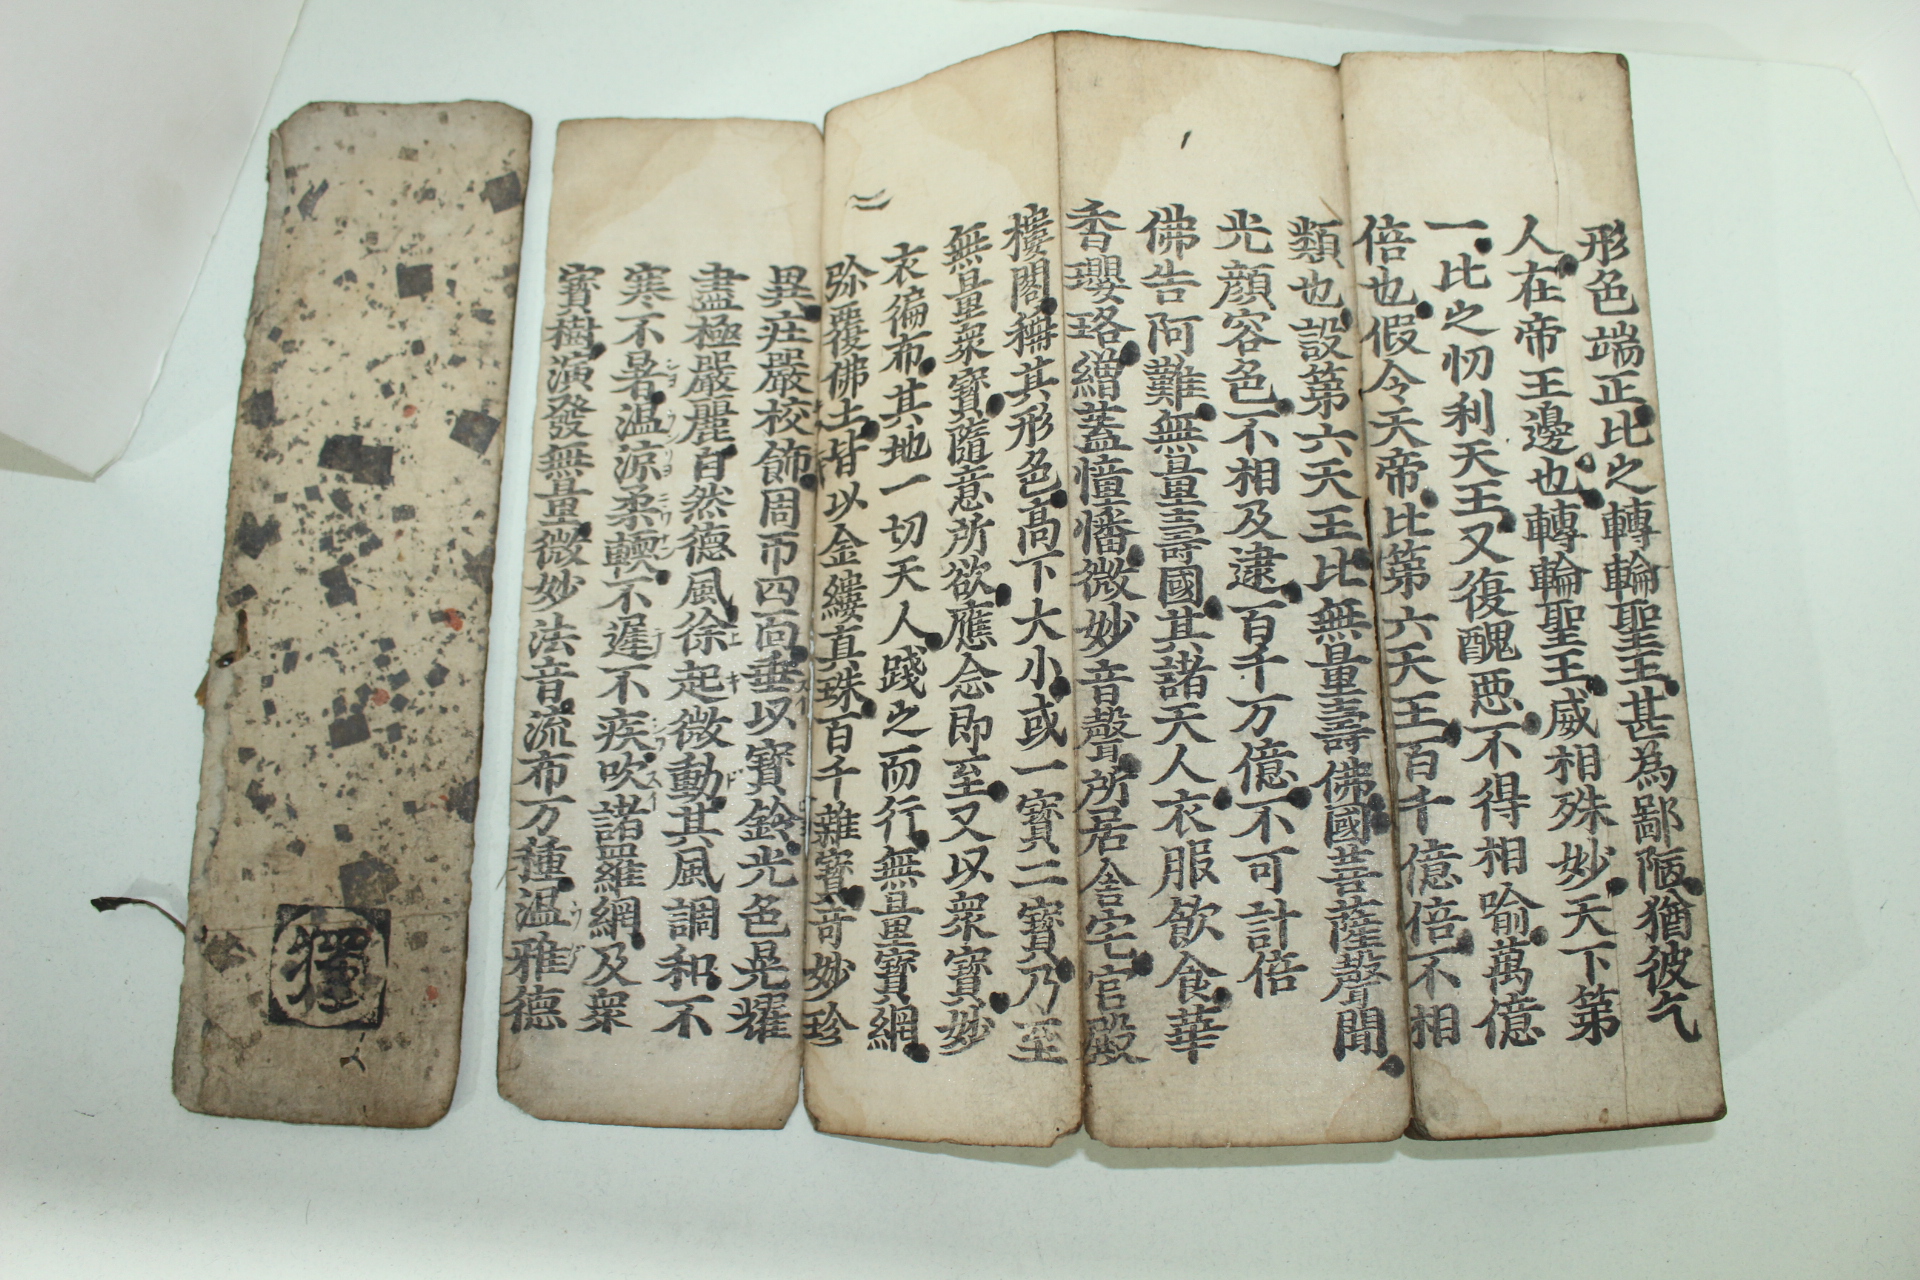 形色端正比之轉輪聖王甚為鄙陋猶彼乞
人在帝王邊也轉輪聖王威相殊妙天下第
一比之忉利天王又復醜惡不得相喻萬億
倍也假令天帝比第六天王百千億倍不相
類也設第六天王比無量壽佛國菩薩聲聞
光顔容色不相及逮百千万億不可計倍
佛告阿難無量壽國其諸天人衣服飲食華
香瓔珞繒蓋幢幡微妙音聲所居舎宅宮殿
樓閣稱其形色高下大小或一寳二寳乃至
無量衆寳隨意所欲應念即至又以衆寳妙
衣徧布其地一切天人践之而行無量寳網
弥覆佛土皆以金縷真珠百千雜寳竒妙珍
異莊嚴校飾周帀四面垂以寳鈴光色晃耀
盡極嚴麗自然德風徐起微動其風調和不
寒不暑温涼柔輭不遅不疾吹諸羅網及衆
寳樹演發無量微妙法音流布万種温雅德